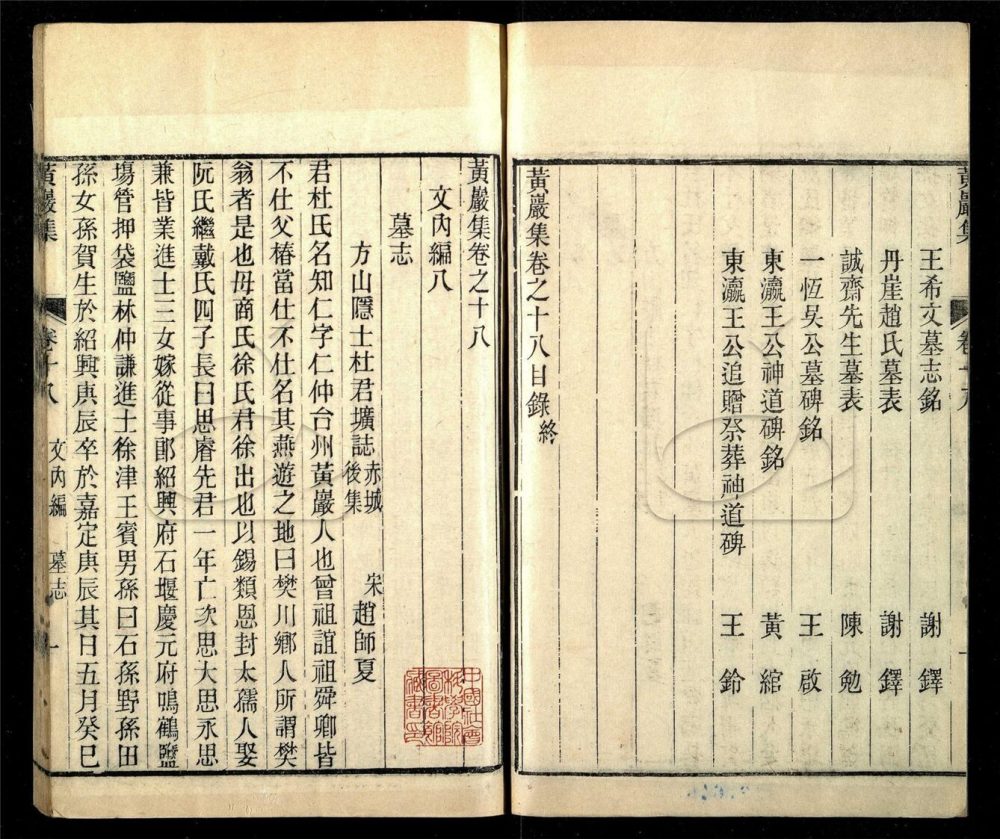 黃巖集 卷十八
王希文墓志銘 謝鐸
丹崖趙氏墓表 謝鐸
誠齋先生墓表 陳勉
一恆吳公墓碑銘 王啟
東瀛王公神道碑銘 黃綰
東瀛王公追贈祭葬神道碑 王鈴
黃巖集卷之十八目錄終
黃巖集卷之十八
文內編八
墓志
方山隱士杜君壙誌 赤城後集 宋趙師夏
君杜氏名知仁字仁仲台州黃巖人也曾祖誼祖舜卿皆
不仕父椿當仕不仕名其燕遊之地曰樊川鄉人所謂樊
翁者是也毋商氏徐氏君徐出也以錫類恩封太孺人娶
阮氏繼戴氏四子長曰思睿先君一年亡次思大思永思
兼皆業進士三女嫁從事郎紹興府石堰慶元府鳴鶴鹽
塲管押袋鹽林仲謙進士徐津王賓男孫曰石孫野孫田
孫女孫賀生於紹興庚辰卒於嘉定庚辰其日五月癸巳
黃巖集 卷十八 文內編 墓志 一
中國社會科學院圖書館藏書印